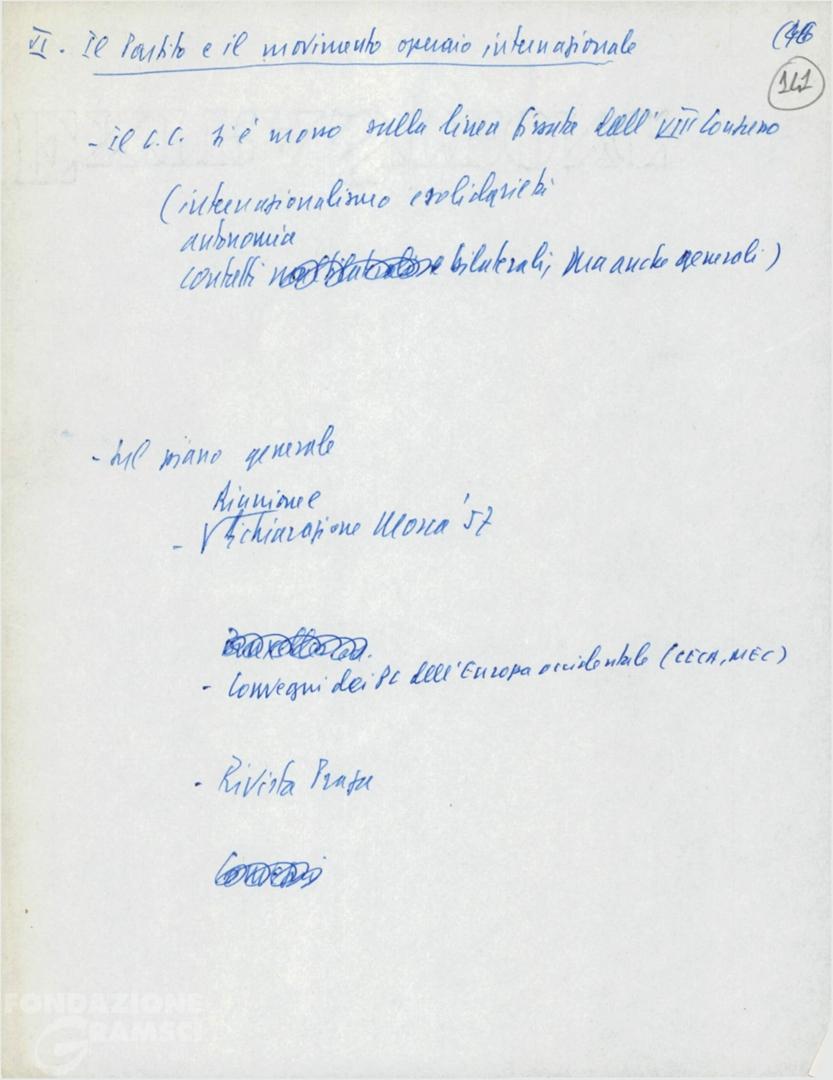 VI. Il Partito e il movimento operaio internazionale
141
- Il C.C. si è mosso sulla linea fissata dall'VIII Congresso
(internazionalismo e solidarietà
autonomia
contatti bilaterali, ma anche generali)
- Sul piano generale
Riunione e
- Dichiarazione Mosca '57
- Convegni dei PC dell'Europa occidentale (CECA, MEC)
- Rivista Praga
FONDAZIONE
GRAMSCI